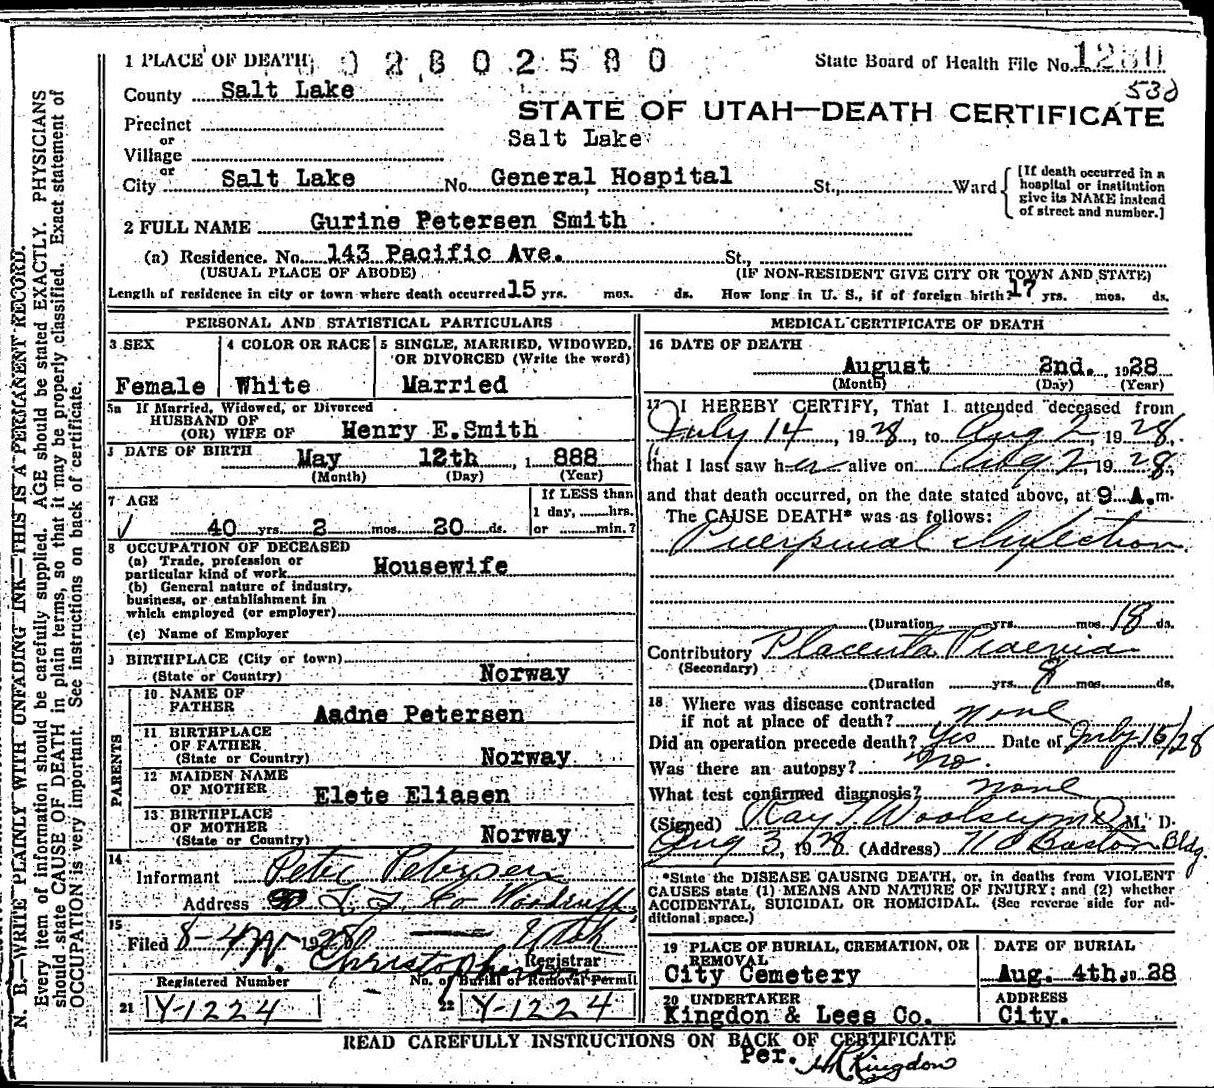 N. B.—WRITE PLAINLY WITH UNFADING INK—THIS IS A PERMANENT RECORD.
Every item of information should be carefully supplied. AGE should be stated EXACTLY. PHYSICIANS
should state CAUSE OF DEATH in plain terms, so that it may be properly classified. Exact statement of
OCCUPATION is very important. See instructions on back of certificate.
1 PLACE OF DEATH 02802580
State Board of Health File No. 1280
53d
County Salt Lake
STATE OF UTAH—DEATH CERTIFICATE
Precinct
Salt Lake
or
Village
or
City Salt Lake No. General Hospital St., Ward
[If death occurred in a
hospital or institution
give its NAME instead
of street and number.]
2 FULL NAME Gurine Petersen Smith
(a) Residence. No. 143 Pacific Ave. St.,
(USUAL PLACE OF ABODE) (IF NON-RESIDENT GIVE CITY OR TOWN AND STATE)
Length of residence in city or town where death occurred 15 yrs. mos. ds. How long in U. S., if of foreign birth? 17 yrs. mos. ds.
PERSONAL AND STATISTICAL PARTICULARS
3 SEX
Female
4 COLOR OR RACE
White
5 SINGLE, MARRIED, WIDOWED,
OR DIVORCED (Write the word)
Married
5a If Married, Widowed, or Divorced
HUSBAND OF
(OR) WIFE OF Henry E.Smith
DATE OF BIRTH
May 12th, 1 888
(Month) (Day) (Year)
7 AGE
40 yrs. 2 mos. 20 ds.
If LESS than
1 day, hrs.
or min.?
8 OCCUPATION OF DECEASED
(a) Trade, profession or
particular kind of work Housewife
(b) General nature of industry,
business, or establishment in
which employed (or employer)
(c) Name of Employer
BIRTHPLACE (City or town)
(State or Country) Norway
PARENTS
10 NAME OF
FATHER Aadne Petersen
11 BIRTHPLACE
OF FATHER
(State or Country) Norway
12 MAIDEN NAME
OF MOTHER Elete Eliasen
13 BIRTHPLACE
OF MOTHER
(State or Country) Norway
14
Informant Peter Petersen
Address Woodruff,
Utah
15
Filed 8-4 1928
Christopherson
Registrar
Registered Number
21 Y-1224
No. of Burial or Removal Permit
22 Y-1224
MEDICAL CERTIFICATE OF DEATH
16 DATE OF DEATH
August 2nd. 1928
(Month) (Day) (Year)
17 I HEREBY CERTIFY, That I attended deceased from
July 14, 1928, to Aug 2, 1928,
that I last saw her alive on Aug 2, 1928,
and that death occurred, on the date stated above, at 9 A.m.
The CAUSE DEATH* was as follows:
Puerpural Infection
(Duration yrs. mos. 18 ds.
Contributory Placenta Praevia
(Secondary)
(Duration yrs. 8 mos. ds.
18 Where was disease contracted
if not at place of death? none
Did an operation precede death? Yes Date of July 15/28
Was there an autopsy? No.
What test confirmed diagnosis? none
(Signed) Ray T. Woolsey MD M. D.
Aug 3, 1928. (Address) Boston Bldg.
*State the DISEASE CAUSING DEATH, or, in deaths from VIOLENT
CAUSES state (1) MEANS AND NATURE OF INJURY; and (2) whether
ACCIDENTAL, SUICIDAL OR HOMICIDAL. (See reverse side for ad-
ditional space.)
19 PLACE OF BURIAL, CREMATION, OR
REMOVAL
City Cemetery
DATE OF BURIAL
Aug. 4th. 1928
20 UNDERTAKER
Kingdon & Lees Co.
ADDRESS
City.
READ CAREFULLY INSTRUCTIONS ON BACK OF CERTIFICATE
Per. Kingdon